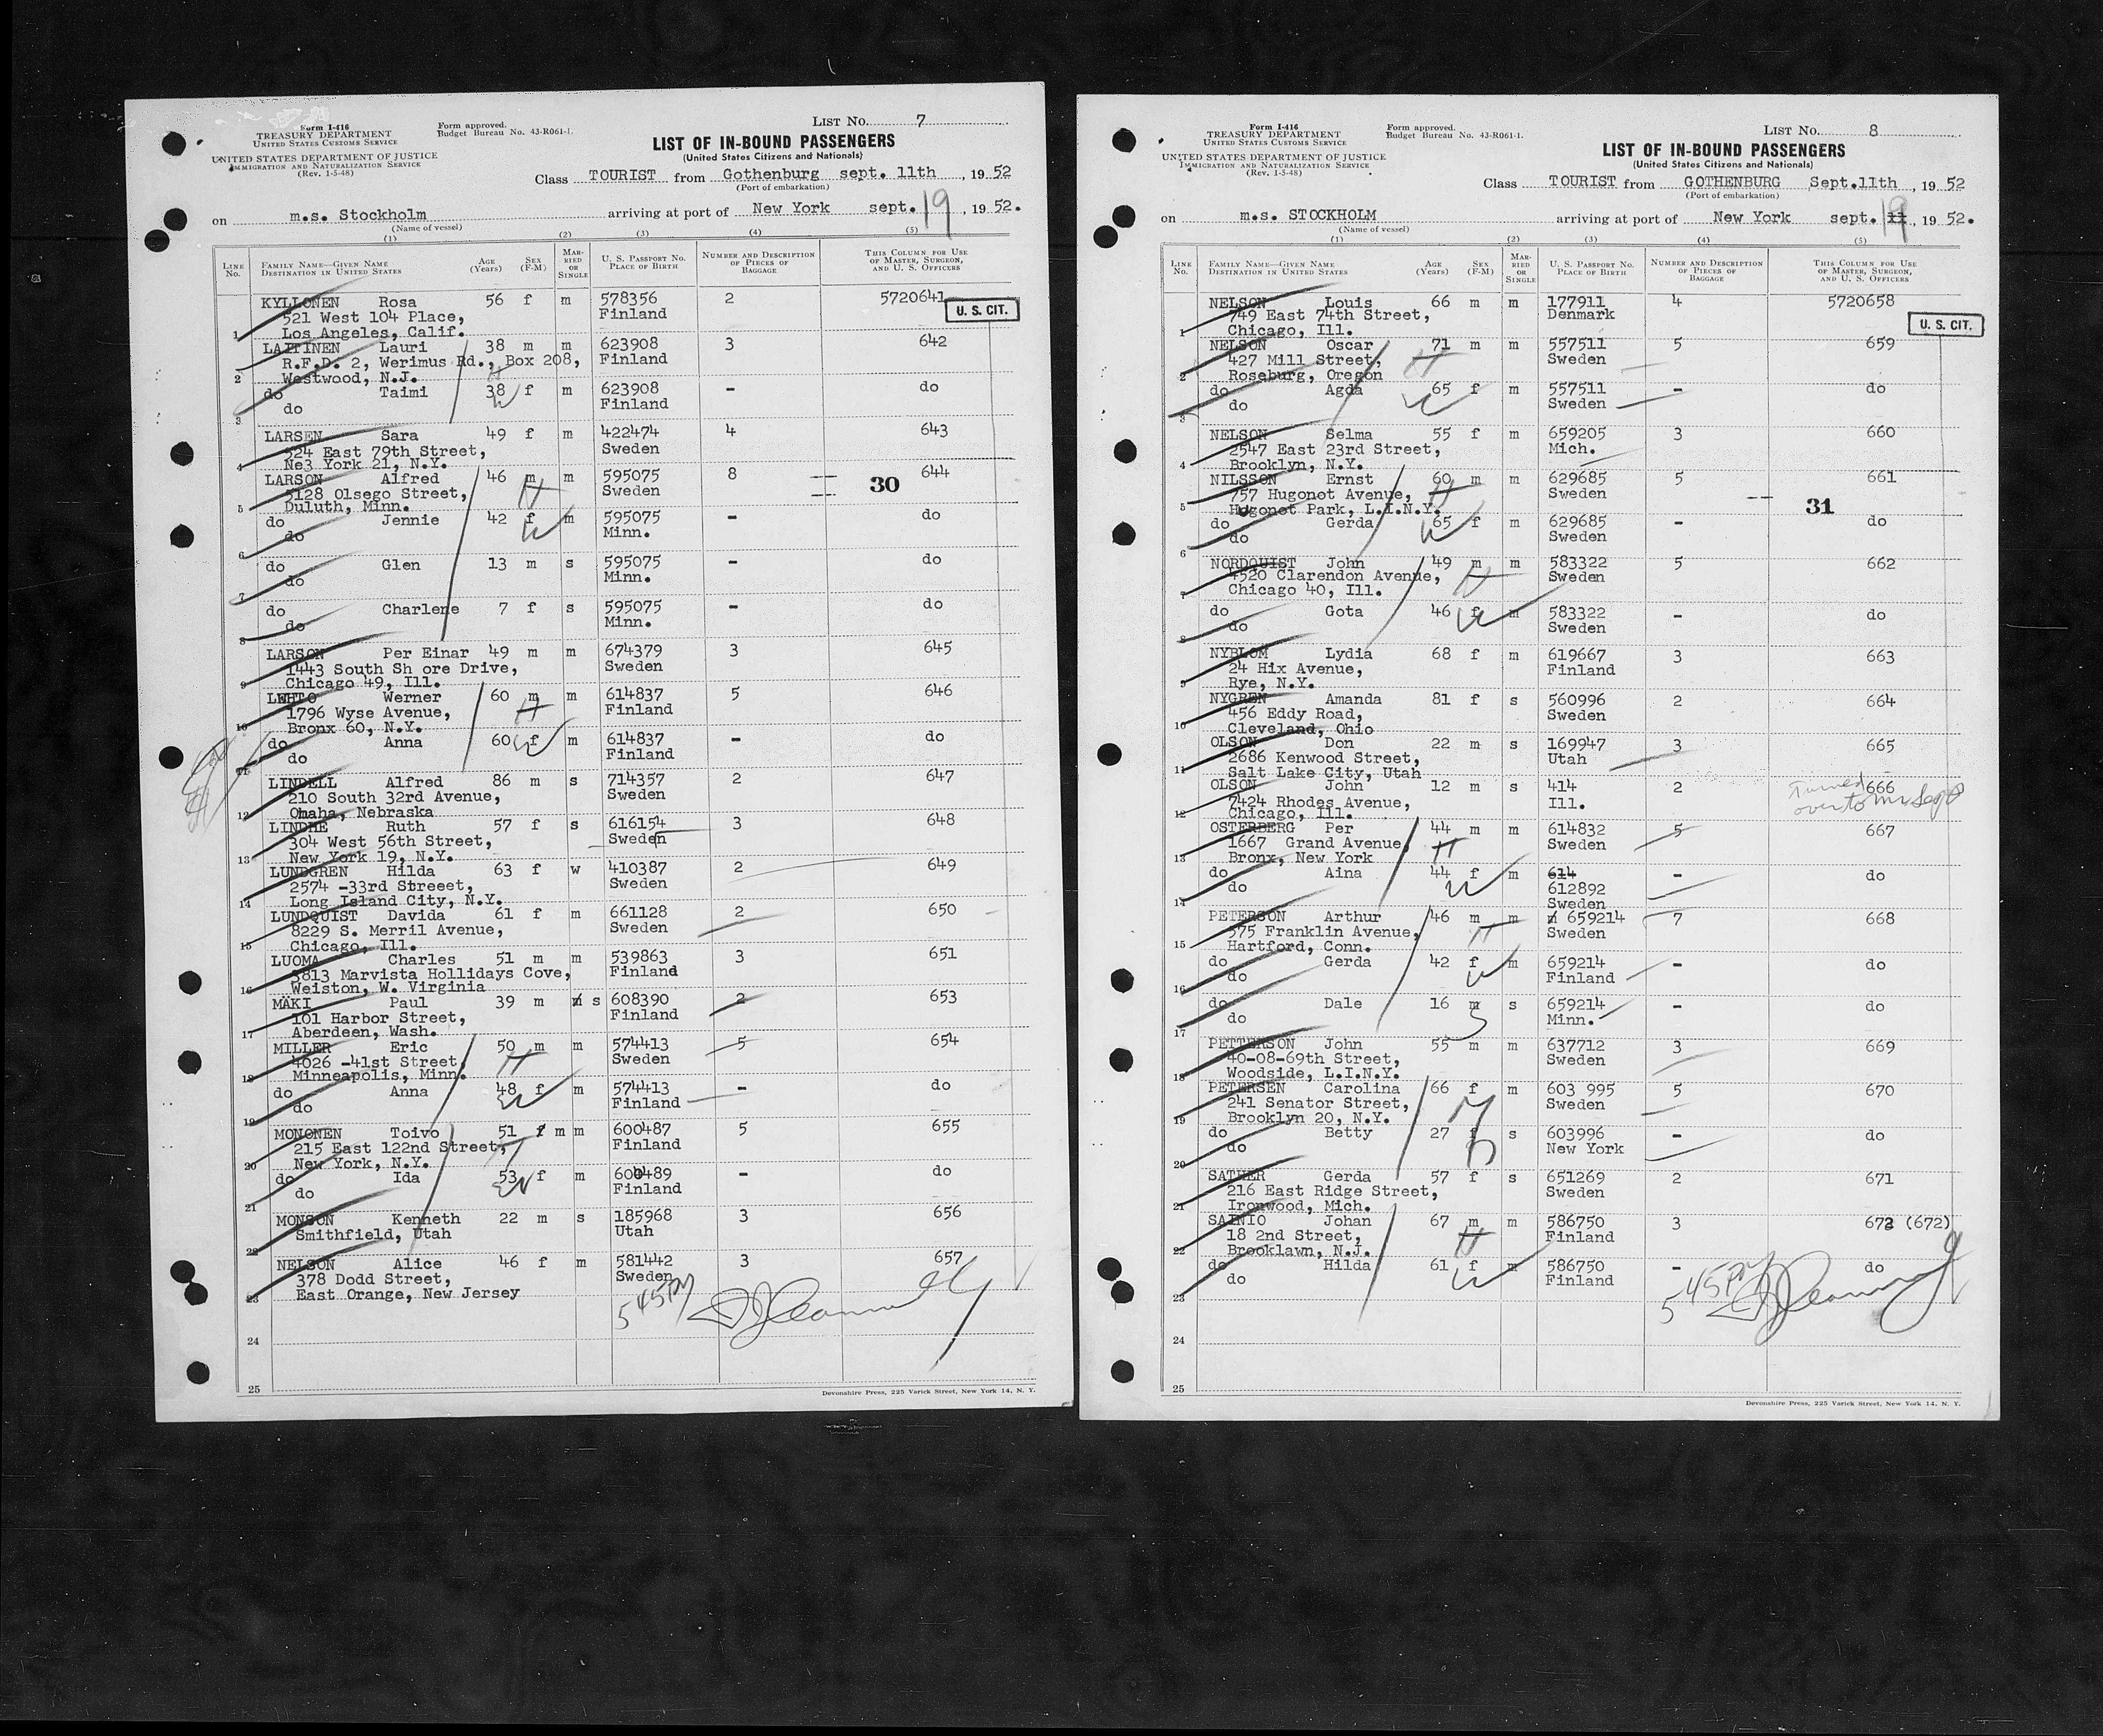 LIST No. 7
Form I-416
TREASURY DEPARTMENT
UNITED STATES CUSTOMS SERVICE
Form approved.
Budget Bureau No. 43-R061-1.
UNITED STATES DEPARTMENT OF JUSTICE
IMMIGRATION AND NATURALIZATION SERVICE
(Rev. 1-5-48)
LIST OF IN-BOUND PASSENGERS
(United States Citizens and Nationals)
Class TOURIST from Gothenburg sept. 11th, 1952
(Port of embarkation)
on m.s. Stockholm arriving at port of New York sept. 19, 1952.
(Name of vessel)
(1) (2) (3) (4) (5)
LINE No. FAMILY NAME—GIVEN NAME DESTINATION IN UNITED STATES AGE (Years) SEX (F-M) MARRIED OR SINGLE U. S. PASSPORT No. PLACE OF BIRTH NUMBER AND DESCRIPTION OF PIECES OF BAGGAGE THIS COLUMN FOR USE OF MASTER, SURGEON, AND U. S. OFFICERS
KYLLONEN Rosa 56 f m 578356 2 5720641
521 West 104 Place, Finland U. S. CIT.
1 Los Angeles, Calif.
LAITINEN Lauri 38 m m 623908 3 642
R.F.D. 2, Werimus Rd., Box 208, Finland
2 Westwood, N.J.
do Taimi 38 f m 623908 - do
do Finland
3
LARSEN Sara 49 f m 422474 4 643
524 East 79th Street, Sweden
4 Ne3 York 21, N.Y.
LARSON Alfred 46 m m 595075 8 644
5128 Olsego Street, Sweden 30
5 Duluth, Minn.
do Jennie 42 f m 595075 - do
do Minn.
6
do Glen 13 m s 595075 - do
do Minn.
7
do Charlene 7 f s 595075 - do
do Minn.
8
LARSON Per Einar 49 m m 674379 3 645
1443 South Sh ore Drive, Sweden
9 Chicago 49, Ill.
LEHTO Werner 60 m m 614837 5 646
1796 Wyse Avenue, Finland
10 Bronx 60, N.Y.
do Anna 60 f m 614837 - do
do Finland
11
LINDELL Alfred 86 m s 714357 2 647
210 South 32rd Avenue, Sweden
12 Omaha, Nebraska
LINDHE Ruth 57 f s 616154 3 648
304 West 56th Street, Sweden
13 New York 19, N.Y.
LUNDGREN Hilda 63 f w 410387 2 649
2574 -33rd Streeet, Sweden
14 Long Island City, N.Y.
LUNDQUIST Davida 61 f m 661128 2 650
8229 S. Merril Avenue, Sweden
15 Chicago, Ill.
LUOMA Charles 51 m m 539863 3 651
3813 Marvista Hollidays Cove, Finland
16 Weiston, W. Virginia
MÄKI Paul 39 m m s 608390 2 653
101 Harbor Street, Finland
17 Aberdeen, Wash.
MILLER Eric 50 m m 574413 5 654
4026 -41st Street, Sweden
18 Minneapolis, Minn.
do Anna 48 f m 574413 - do
do Finland
19
MONONEN Toivo 51 f m m 600487 5 655
215 East 122nd Street, Finland
20 New York, N.Y.
do Ida 53 f m 600489 - do
do Finland
21
MONSON Kenneth 22 m s 185968 3 656
Smithfield, Utah Utah
22
NELSON Alice 46 f m 581442 3 657
378 Dodd Street, Sweden
23 East Orange, New Jersey
545PM
24
25
Devonshire Press, 225 Varick Street, New York 14, N. Y.
LIST No. 8
Form I-416
TREASURY DEPARTMENT
UNITED STATES CUSTOMS SERVICE
Form approved.
Budget Bureau No. 43-R061-1.
UNITED STATES DEPARTMENT OF JUSTICE
IMMIGRATION AND NATURALIZATION SERVICE
(Rev. 1-5-48)
LIST OF IN-BOUND PASSENGERS
(United States Citizens and Nationals)
Class TOURIST from GOTHENBURG Sept.11th, 1952
(Port of embarkation)
on m.s. STOCKHOLM arriving at port of New York sept. 11 19, 1952.
(Name of vessel)
(1) (2) (3) (4) (5)
LINE No. FAMILY NAME—GIVEN NAME DESTINATION IN UNITED STATES AGE (Years) SEX (F-M) MARRIED OR SINGLE U. S. PASSPORT No. PLACE OF BIRTH NUMBER AND DESCRIPTION OF PIECES OF BAGGAGE THIS COLUMN FOR USE OF MASTER, SURGEON, AND U. S. OFFICERS
NELSON Louis 66 m m 177911 4 5720658
749 East 74th Street, Denmark U. S. CIT.
1 Chicago, Ill.
NELSON Oscar 71 m m 557511 5 659
427 Mill Street, Sweden
2 Roseburg, Oregon
do Agda 65 f m 557511 - do
do Sweden
3
NELSON Selma 55 f m 659205 3 660
2547 East 23rd Street, Mich.
4 Brooklyn, N.Y.
NILSSON Ernst 60 m m 629685 5 661
757 Hugonot Avenue, Sweden 31
5 Hugonot Park, L.I.N.Y.
do Gerda 65 f m 629685 - do
do Sweden
6
NORDQUIST John 49 m m 583322 5 662
4520 Clarendon Avenue, Sweden
7 Chicago 40, Ill.
do Gota 46 f m 583322 - do
do Sweden
8
NYBLOM Lydia 68 f m 619667 3 663
24 Hix Avenue, Finland
9 Rye, N.Y.
NYGREN Amanda 81 f s 560996 2 664
456 Eddy Road, Sweden
10 Cleveland, Ohio
OLSON Don 22 m s 169947 3 665
2686 Kenwood Street, Utah
11 Salt Lake City, Utah
OLSON John 12 m s 414 2 666
7424 Rhodes Avenue, Ill. Turned over to
12 Chicago, Ill.
OSTERBERG Per 44 m m 614832 5 667
1667 Grand Avenue, Sweden
13 Bronx, New York
do Aina 44 f m 614 - do
do 612892
14 Sweden
PETERSON Arthur 46 m m m 659214 7 668
575 Franklin Avenue, Sweden
15 Hartford, Conn.
do Gerda 42 f m 659214 - do
do Finland
16
do Dale 16 m s 659214 - do
do Minn.
17
PETTERSON John 55 m m 637712 3 669
40-08-69th Street, Sweden
18 Woodside, L.I.N.Y.
PETERSEN Carolina 66 f m 603 995 5 670
241 Senator Street, Sweden
19 Brooklyn 20, N.Y.
do Betty 27 f s 603996 - do
do New York
20
SATHER Gerda 57 f s 651269 2 671
216 East Ridge Street, Sweden
21 Ironwood, Mich.
SAINIO Johan 67 m m 586750 3 672 (672)
18 2nd Street, Finland
22 Brooklawn, N.J.
do Hilda 61 f m 586750 - do
do Finland
23
545PM
24
25
Devonshire Press, 225 Varick Street, New York 14, N. Y.